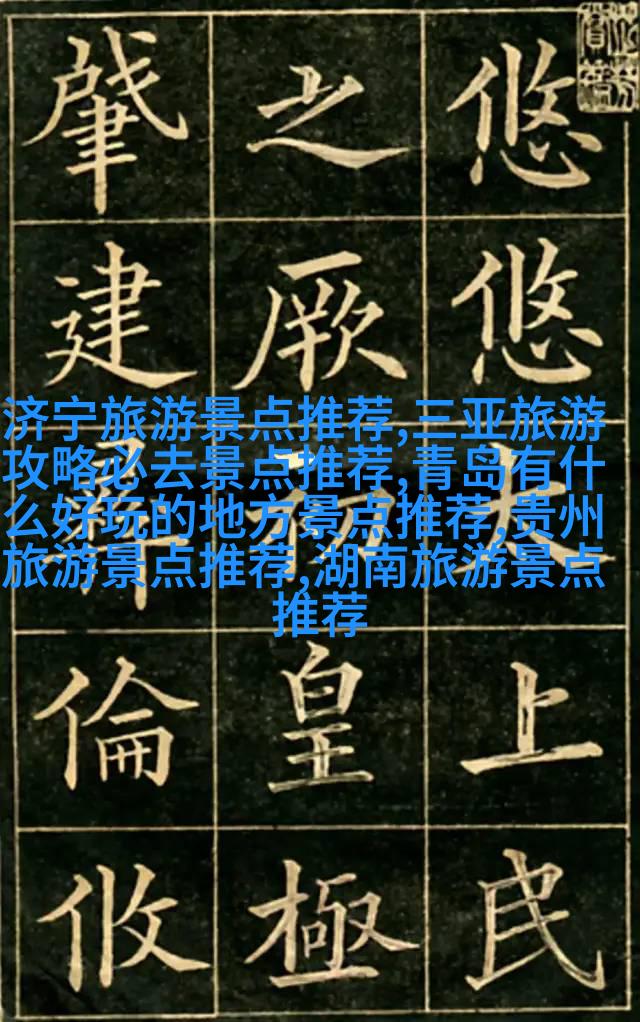 悠悠
上民
之厥
皇極
肇建
倫攸
济宁旅游景点推荐,三亚旅游
攻略必去景点推荐,青岛有什
么好玩的地方景点推荐,贵州
旅游景点推荐,湖南旅游景点
推荐